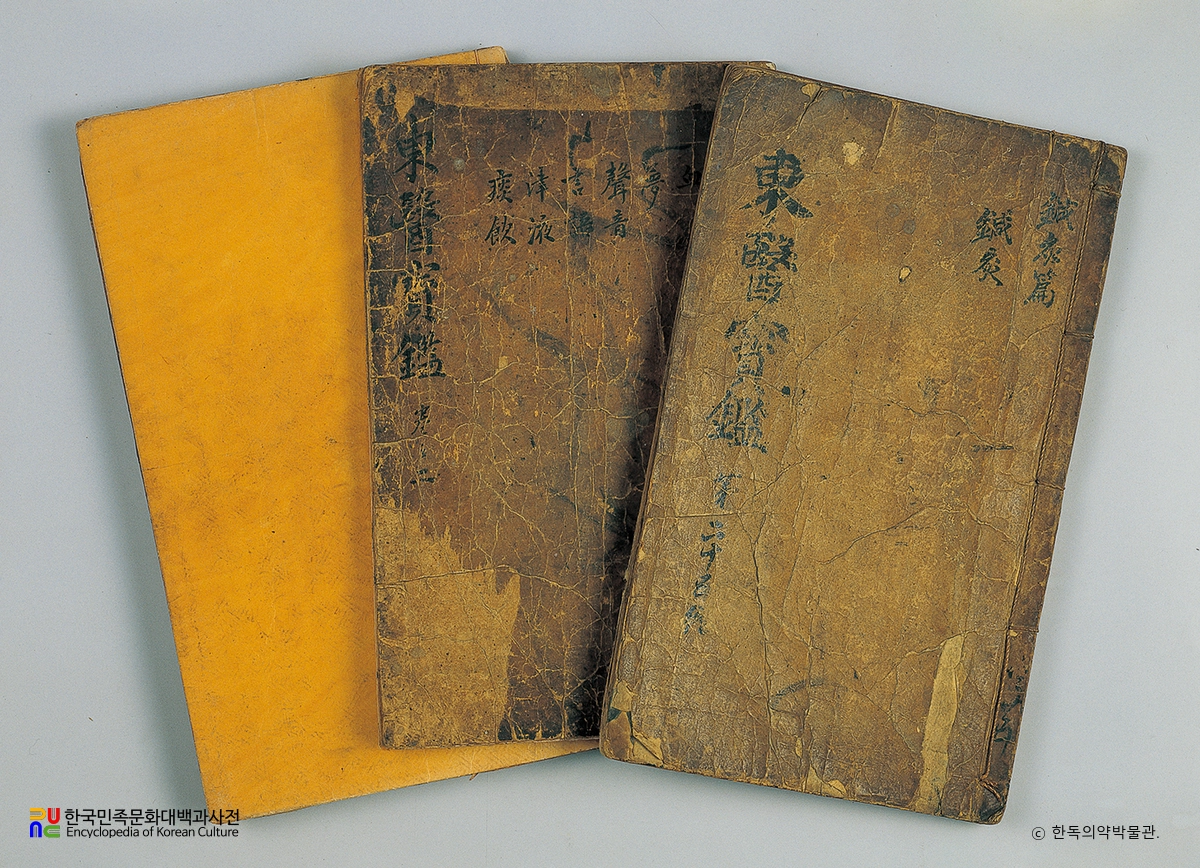 鍼灸篇
鍼灸
東醫寶鑑
第二十五
夢
聲音
言
津液
痰飮
東醫寶鑑
卷之二
한국민족문화대백과사전
Encyclopedia of Korean Culture
ⓒ 한독의약박물관.